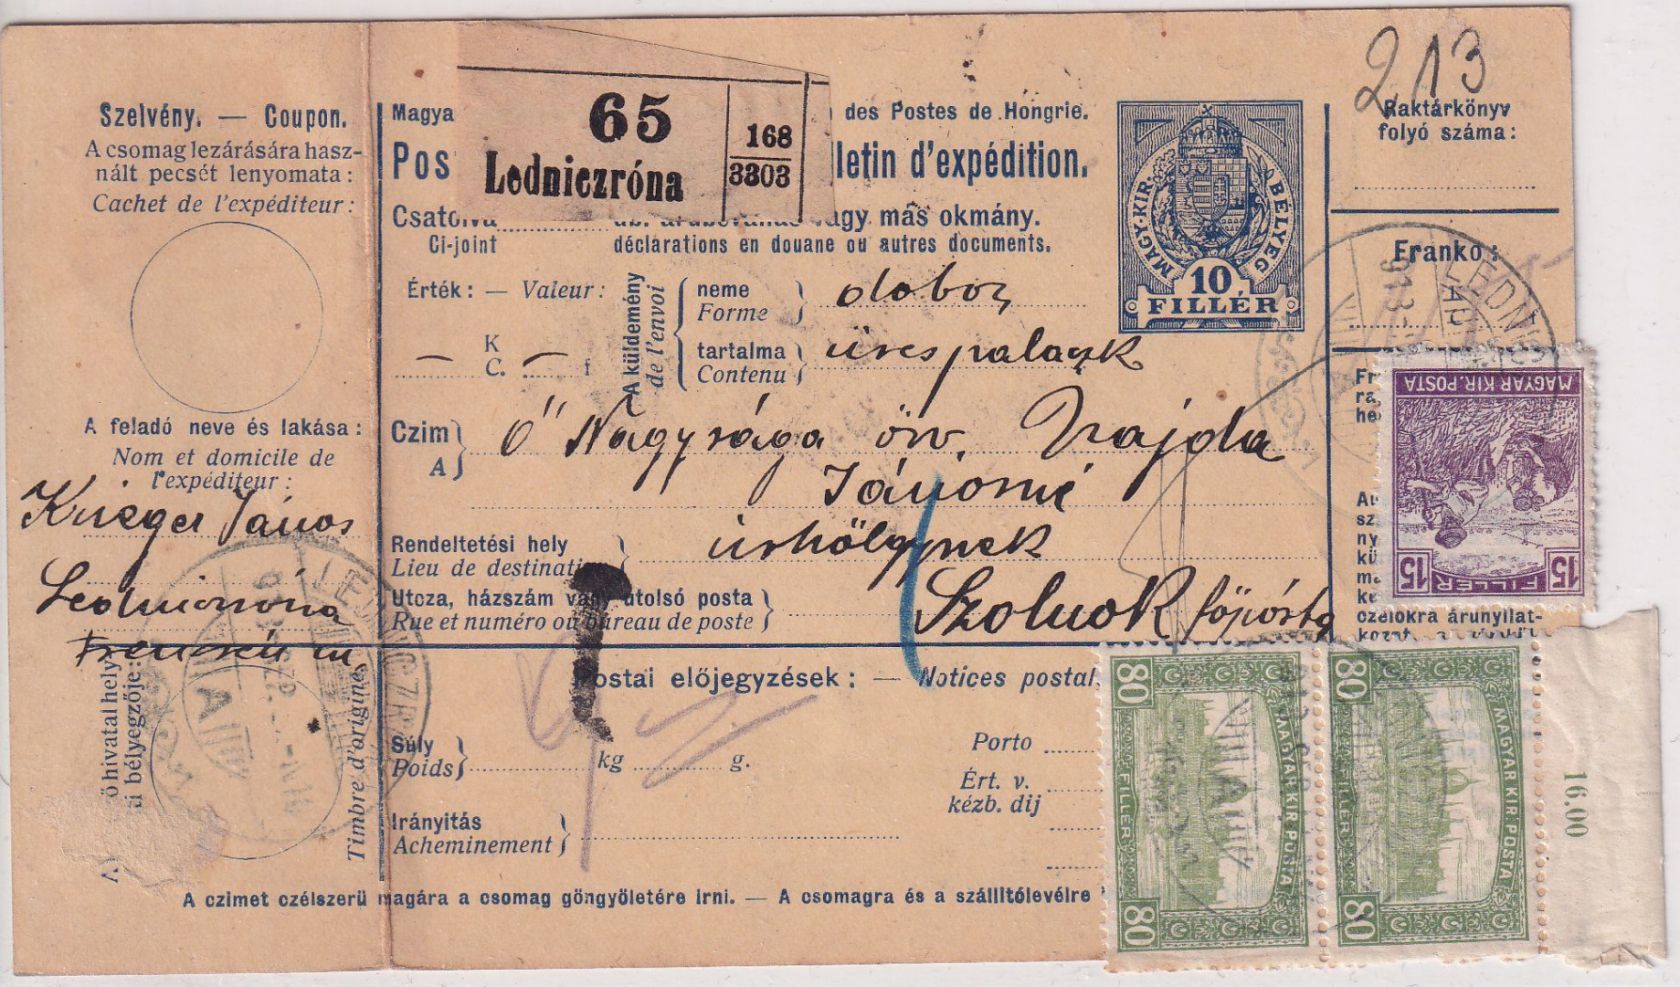 213
Szelvény. — Coupon.
A csomag lezárására hasz-
nált pecsét lenyomata:
Cachet de l'expéditeur:
A feladó neve és lakása:
Nom et domicile de
l'expéditeur:
Krieger János
Ledniczróna
Trencsén m.
hivatal hely
i bélyegzője:
Timbre d'origine.
Magya
des Postes de Hongrie.
65
Ledniczróna
168
3303
Pos
letin d'expédition.
Csatolva
vagy más okmány.
Ci-joint
déclarations en douane ou autres documents.
MAGY. KIR. BÉLYEG
10
FILLÉR
Raktárkönyv
folyó száma:
Franko:
Érték: — Valeur:
— K —
C. f
A küldemény
de l'envoi
neme
Forme
doboz
tartalma
Contenu
üres palaczk
Czim
A
Ő Nagysága özv. Vajda
Jánosné
úrhölgynek
Rendeltetési hely
Lieu de destinati
Szolnok főposta
Utcza, házszám va utolsó posta
Rue et numéro ou bureau de poste
MAGYAR KIR. POSTA
15 FILLÉR 15
czélokra árunyilat-
Postai előjegyzések: — Notices postal
Súly
Poids
kg g.
Porto
Ért. v.
kézb. dij
Irányitás
Acheminement
80 MAGYAR KIR. POSTA
FILLÉR 80
80 MAGYAR KIR. POSTA
FILLÉR 80
16.00
A czimet czélszerü magára a csomag göngyöletére irni. — A csomagra és a szállitólevélre